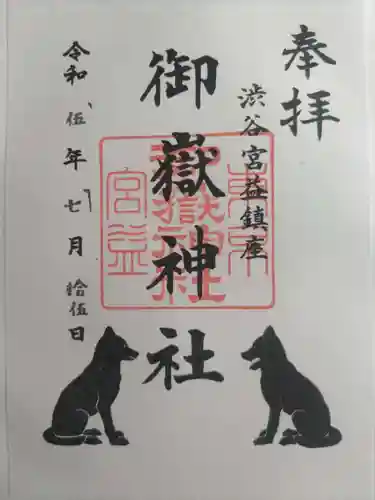 奉拝
渋谷宮益鎮座
御嶽神社
令和伍年七月拾伍日
東京
御嶽神社
宮益